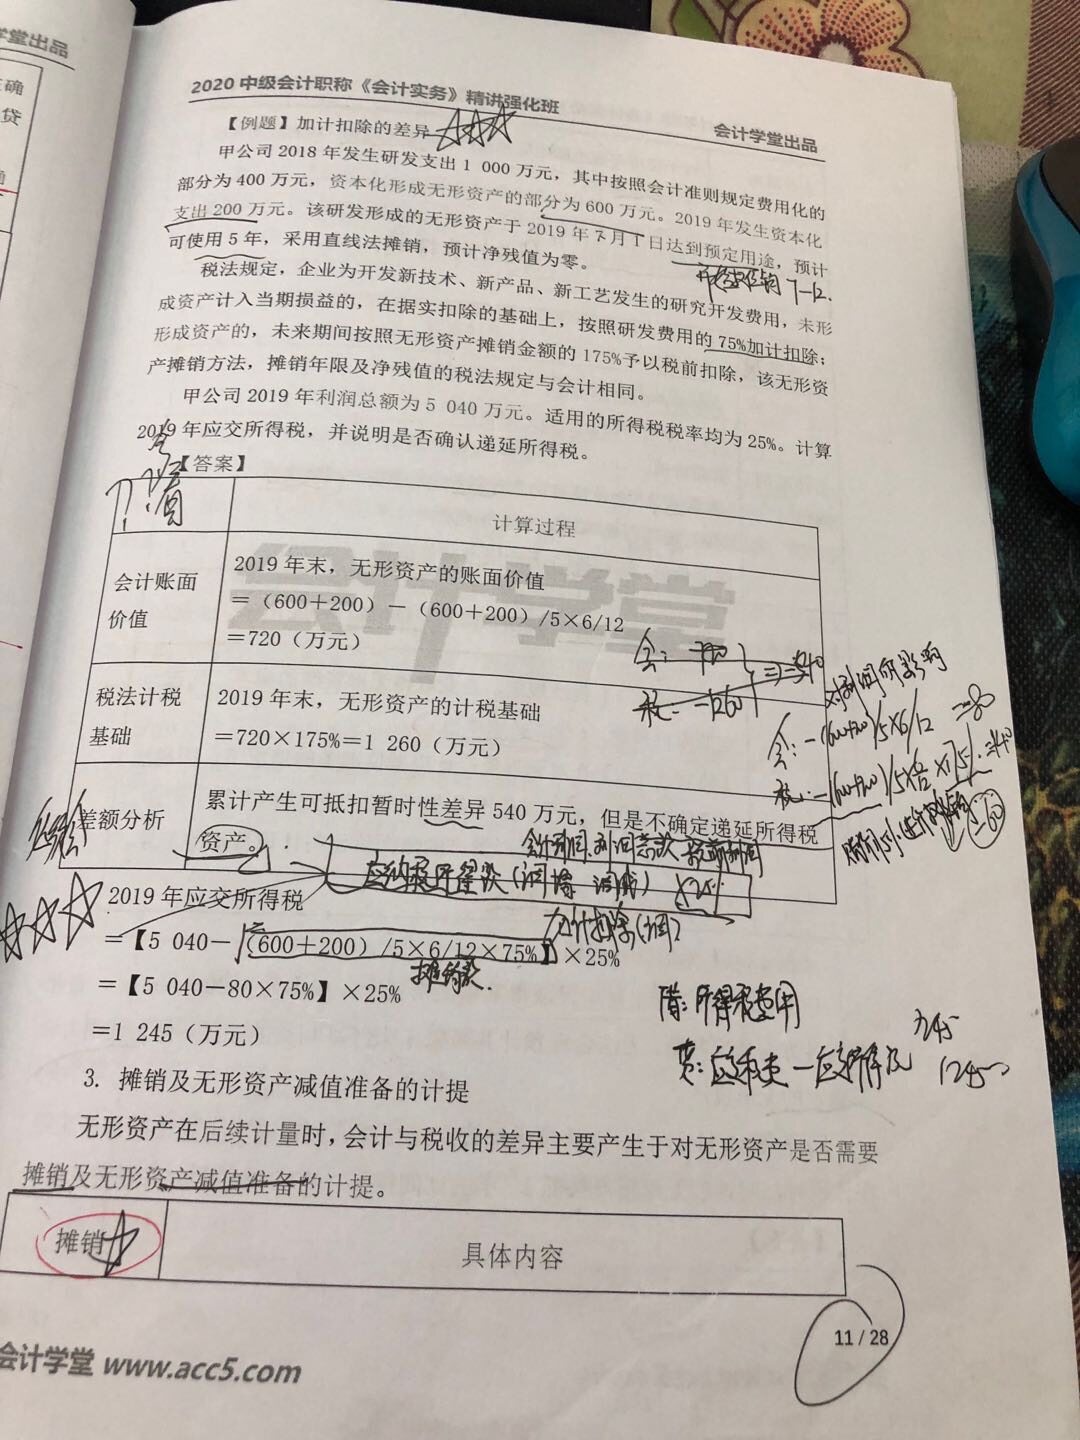 学堂出品
确
贷
2020 中级会计职称《会计实务》精讲强化班
会计学堂出品
【例题】加计扣除的差异
甲公司 2018 年发生研发支出 1 000 万元，其中按照会计准则规定费用化的
部分为 400 万元，资本化形成无形资产的部分为 600 万元。2019 年发生资本化
支出 200 万元。该研发形成的无形资产于 2019 年 7 月 1 日达到预定用途，预计
可使用 5 年，采用直线法摊销，预计净残值为零。
7-12.
税法规定，企业为开发新技术、新产品、新工艺发生的研究开发费用，未形
成资产计入当期损益的，在据实扣除的基础上，按照研发费用的 75%加计扣除；
形成资产的，未来期间按照无形资产摊销金额的 175%予以税前扣除，该无形资
产摊销方法，摊销年限及净残值的税法规定与会计相同。
甲公司 2019 年利润总额为 5 040 万元。适用的所得税税率均为 25%。计算
2019 年应交所得税，并说明是否确认递延所得税。
【答案】
计算过程
会计账面
价值
2019 年末，无形资产的账面价值
＝（600＋200）－（600＋200）/5×6/12
＝720（万元）
税法计税
基础
2019 年末，无形资产的计税基础
＝720×175%＝1 260（万元）
会：
税：-1260
对利润的影响
会：-(600+200)/5×6/12
差额分析
累计产生可抵扣暂时性差异 540 万元，但是不确定递延所得税
资产。
会计利润、利润总额、税前利润
应纳税所得额（调增、调减）×25%
2019 年应交所得税
加计扣除(调)
＝【5 040－（600＋200）/5×6/12×75%】×25%
摊销额.
＝【5 040－80×75%】×25%
＝1 245（万元）
借：所得税费用
贷：应交税费—应交所得税
1245
3. 摊销及无形资产减值准备的计提
无形资产在后续计量时，会计与税收的差异主要产生于对无形资产是否需要
摊销及无形资产减值准备的计提。
摊销
具体内容
11 / 28
会计学堂 www.acc5.com